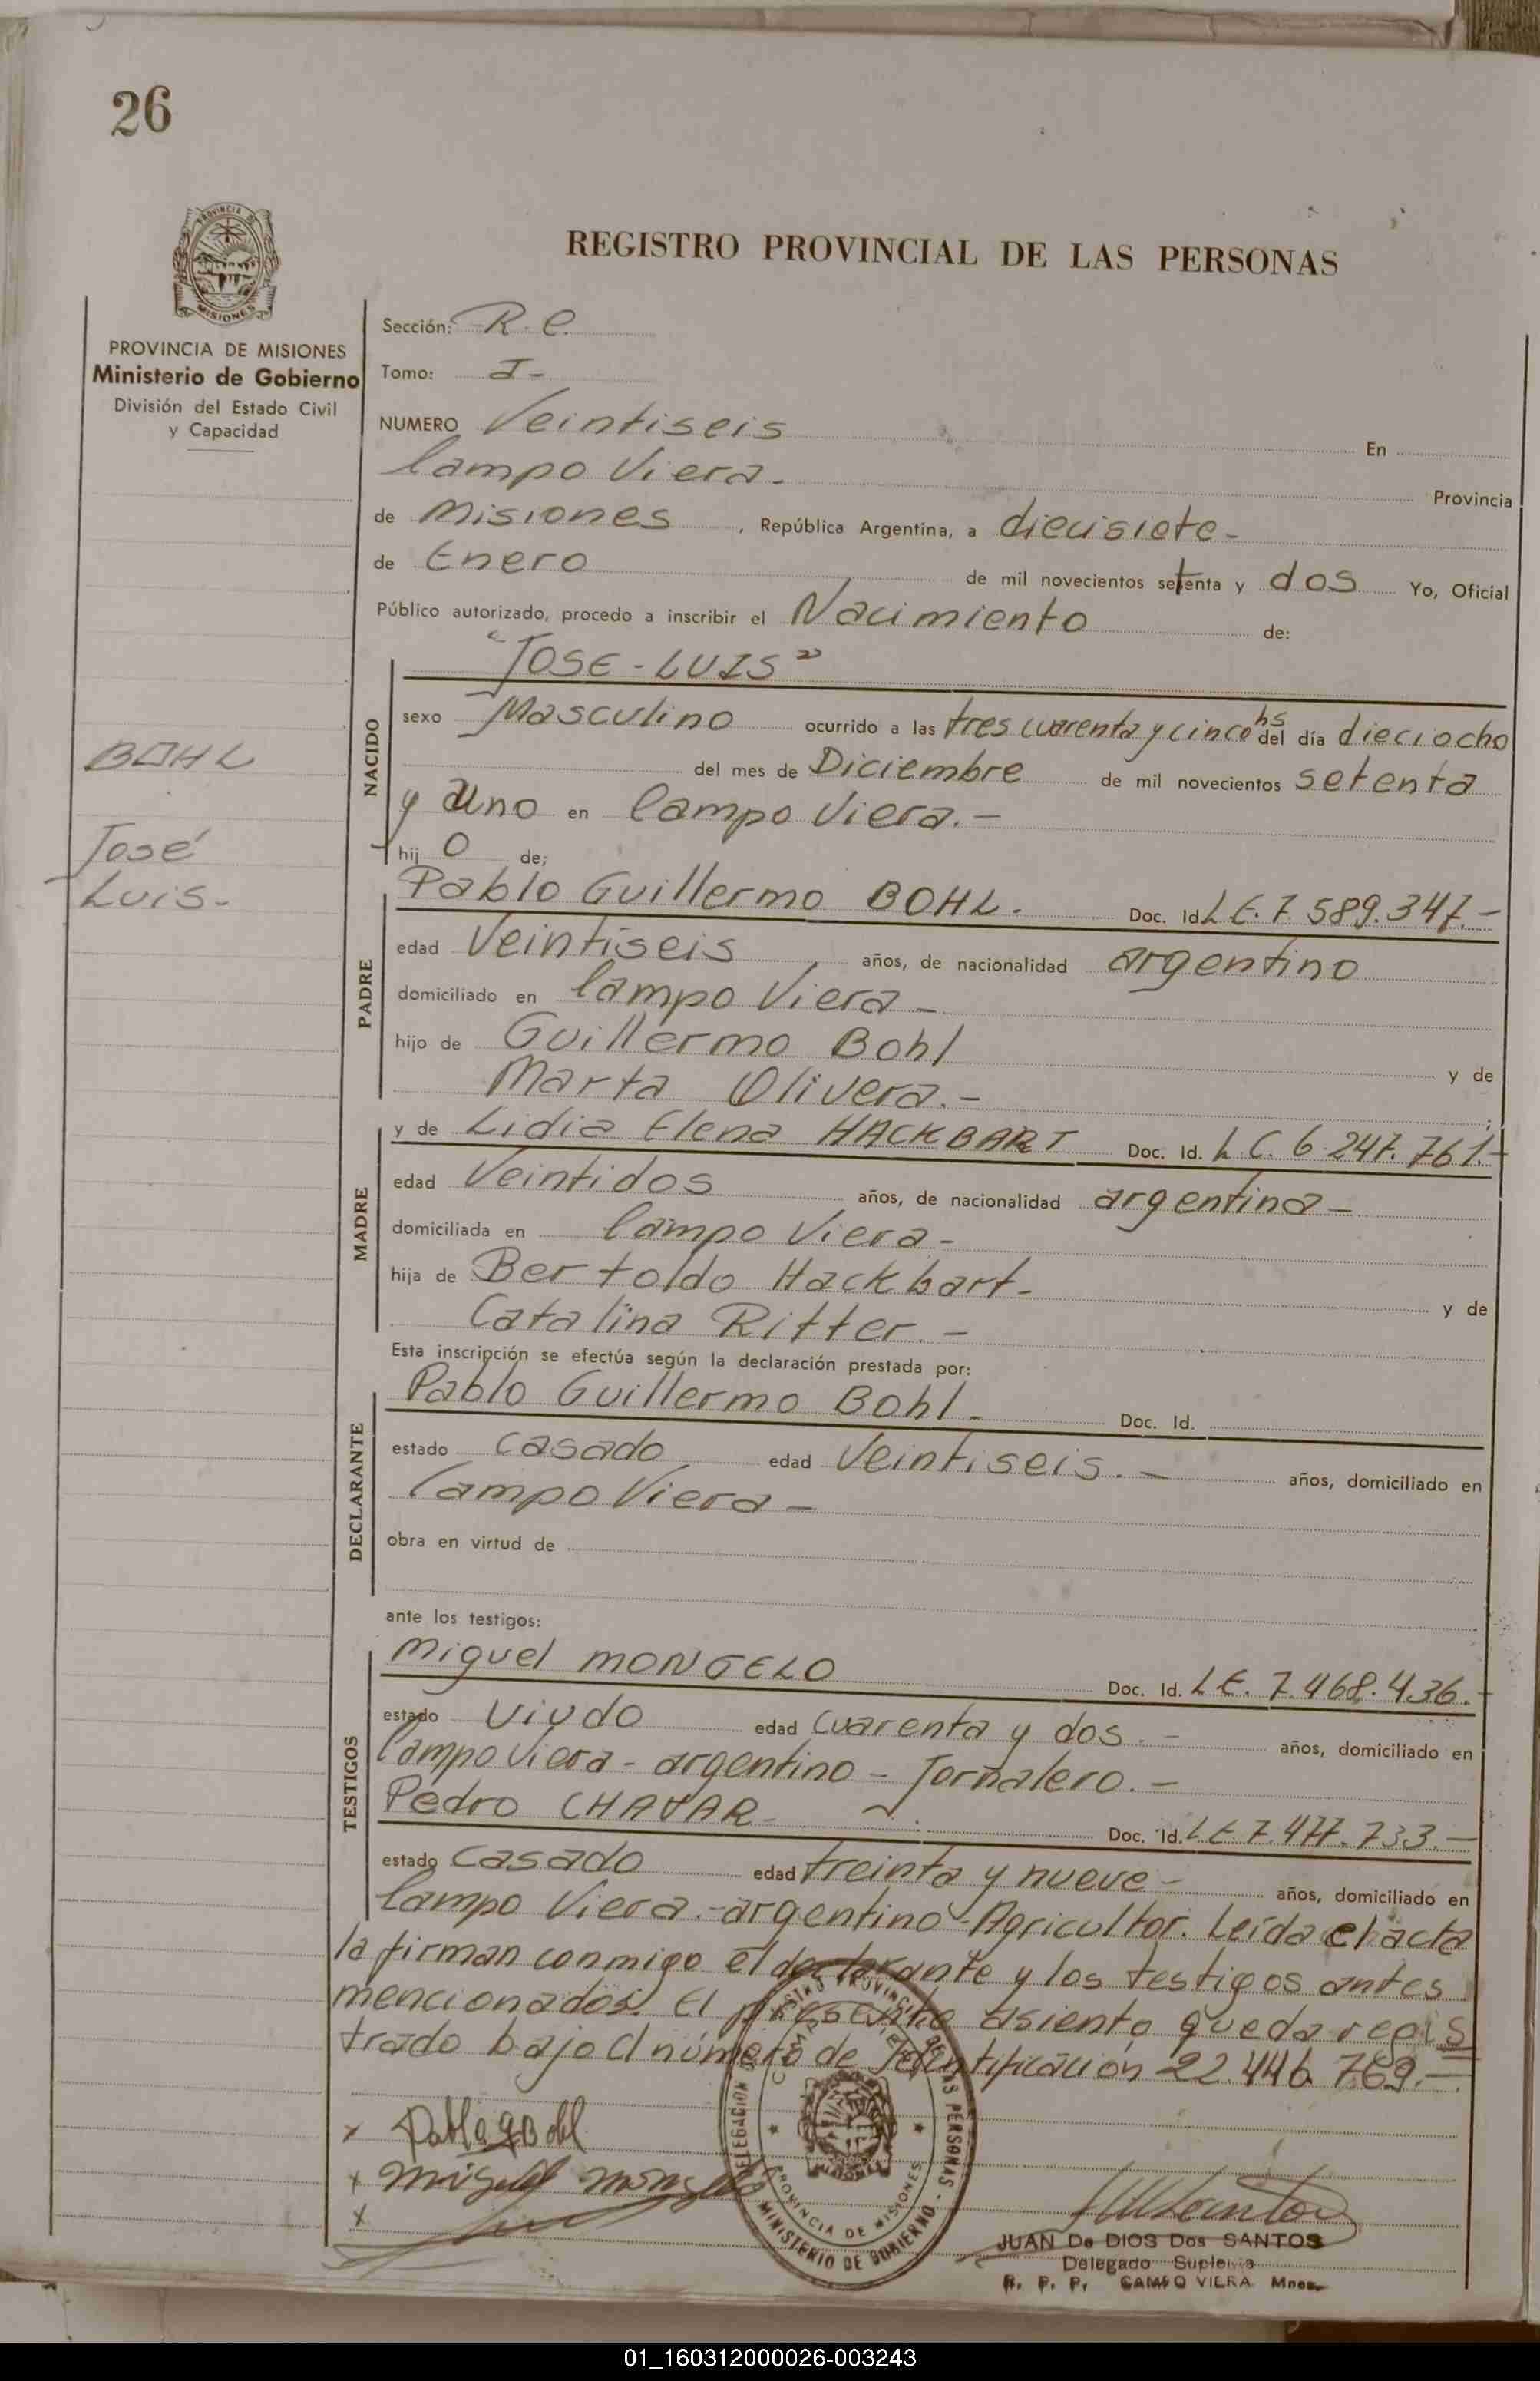 26
PROVINCIA DE MISIONES
REGISTRO PROVINCIAL DE LAS PERSONAS
PROVINCIA DE MISIONES
Ministerio de Gobierno
División del Estado Civil
y Capacidad
Sección: R.C.
Tomo: I-
NUMERO Veintiseis En
Campo Viera.- Provincia
de Misiones, República Argentina, a diecisiete-
de Enero de mil novecientos setenta y dos Yo, Oficial
Público autorizado, procedo a inscribir el Nacimiento de:
"JOSE-LUIS"
NACIDO
sexo Masculino ocurrido a las tres cuarenta y cinco hs del día dieciocho
del mes de Diciembre de mil novecientos setenta
y uno en Campo Viera.-
hijo de;
BOHL
José
Luis-
PADRE
Pablo Guillermo BOHL. Doc. Id L E. 7.589.347.-
edad Veintiseis años, de nacionalidad argentino
domiciliado en Campo Viera-
hijo de Guillermo Bohl y de
Marta Olivera.- ;
MADRE
y de Lidia Elena HACKBART Doc. Id. L.C. 6.247.761.-
edad Veintidos años, de nacionalidad argentina-
domiciliada en Campo Viera-
hija de Bertoldo Hackbart- y de
Catalina Ritter.-
Esta inscripción se efectúa según la declaración prestada por:
DECLARANTE
Pablo Guillermo Bohl- Doc. Id.
estado casado edad Veintiseis.- años, domiciliado en
Campo Viera-
obra en virtud de
ante los testigos:
TESTIGOS
Miguel MONGELO Doc. Id. L E. 7.468.436.-
estado Viudo edad cuarenta y dos.- años, domiciliado en
Campo Viera- argentino- Jornalero.-
Pedro Doc. Id. L E 7.477.733.-
estado casado edad treinta y nueve- años, domiciliado en
Campo Viera.-argentino-Agricultor. Leída el acta
la firman conmigo el declarante y los testigos antes
mencionados. El presente asiento queda regis
trado bajo el número de Identificación 22.446.769.-
x Pablo G Bohl
x Miguel Mongelo
x
DELEGACION REGISTRO PROVINCIAL DE LAS PERSONAS - MINISTERIO DE GOBIERNO
CAMPO VIERA
PROVINCIA DE MISIONES
JUAN De DIOS Dos SANTOS
Delegado Suplente
R. P. P. CAMPO VIERA Mnes.
01_160312000026-003243